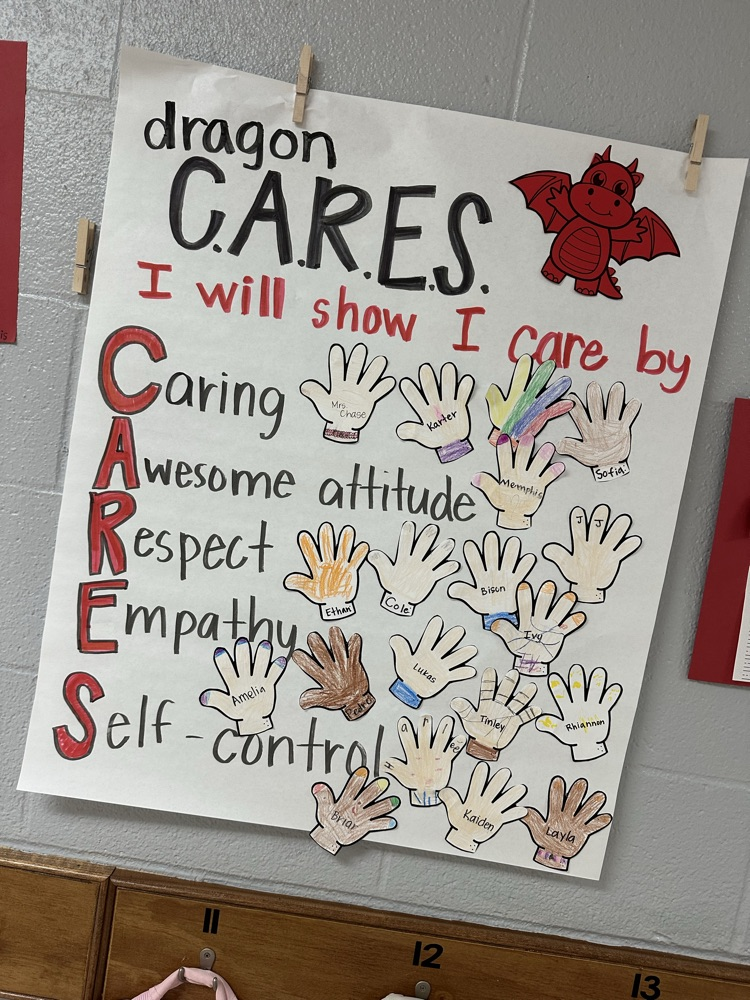 dragon
C.A.R.E.S.
I will show I care by
Caring
Mrs. Chase
Karter
Sofia
Awesome attitude
Memphis
Respect
JJ
Ethan
Cole
Bison
Empathy
Ivy
Amelia
Lukas
Tinley
Rhiannon
Self-control
Harlee
Briar
Kaiden
Layla
11
12
13